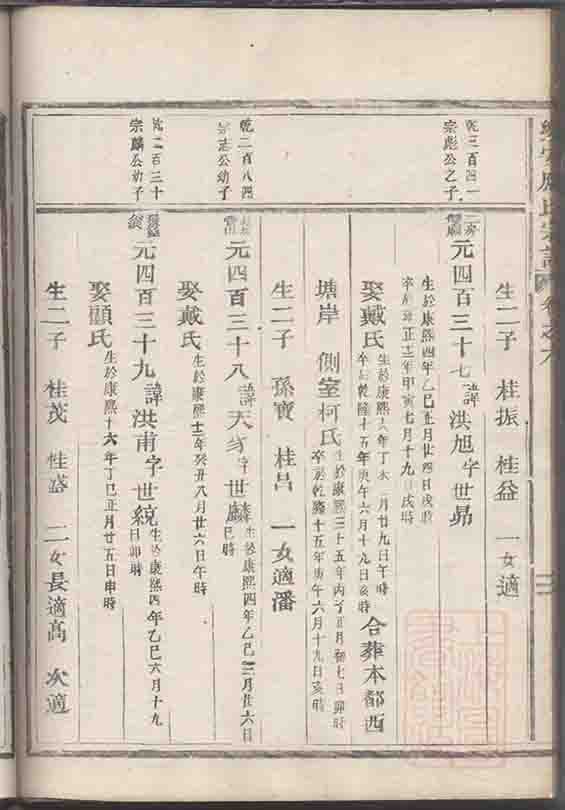 氏宗譜
生二子 桂振 桂益 一女適
乾三百四一
宗彪公之子
元四百三十七 諱洪旭字世昴
生於康熙四年乙巳正月廿四日戌時
卒於雍正十二年甲寅七月十九日戌時
娶戴氏 生於康熙六年丁未二月廿九日午時
卒於乾隆十五年庚午六月十九日亥時
合葬本都西
塘岸 側室柯氏 生於康熙三十五年丙子正月初七日卯時
卒於乾隆十五年庚午六月十九日亥時
生二子 孫寶 桂昌 一女適潘
乾二百八四
公幼子
元四百三十八 諱天字世麟 生於康熙四年乙巳三月廿六日
巳時
娶戴氏 生於康熙十二年癸丑八月廿六日午時
乾二百三十
宗麟公幼子
元四百三十九 諱洪甫字世統 生於康熙四年乙巳六月十九
日卯時
娶顧氏 生於康熙十六年丁巳正月廿五日申時
生二子 桂茂 桂盛 二女長適高 次適